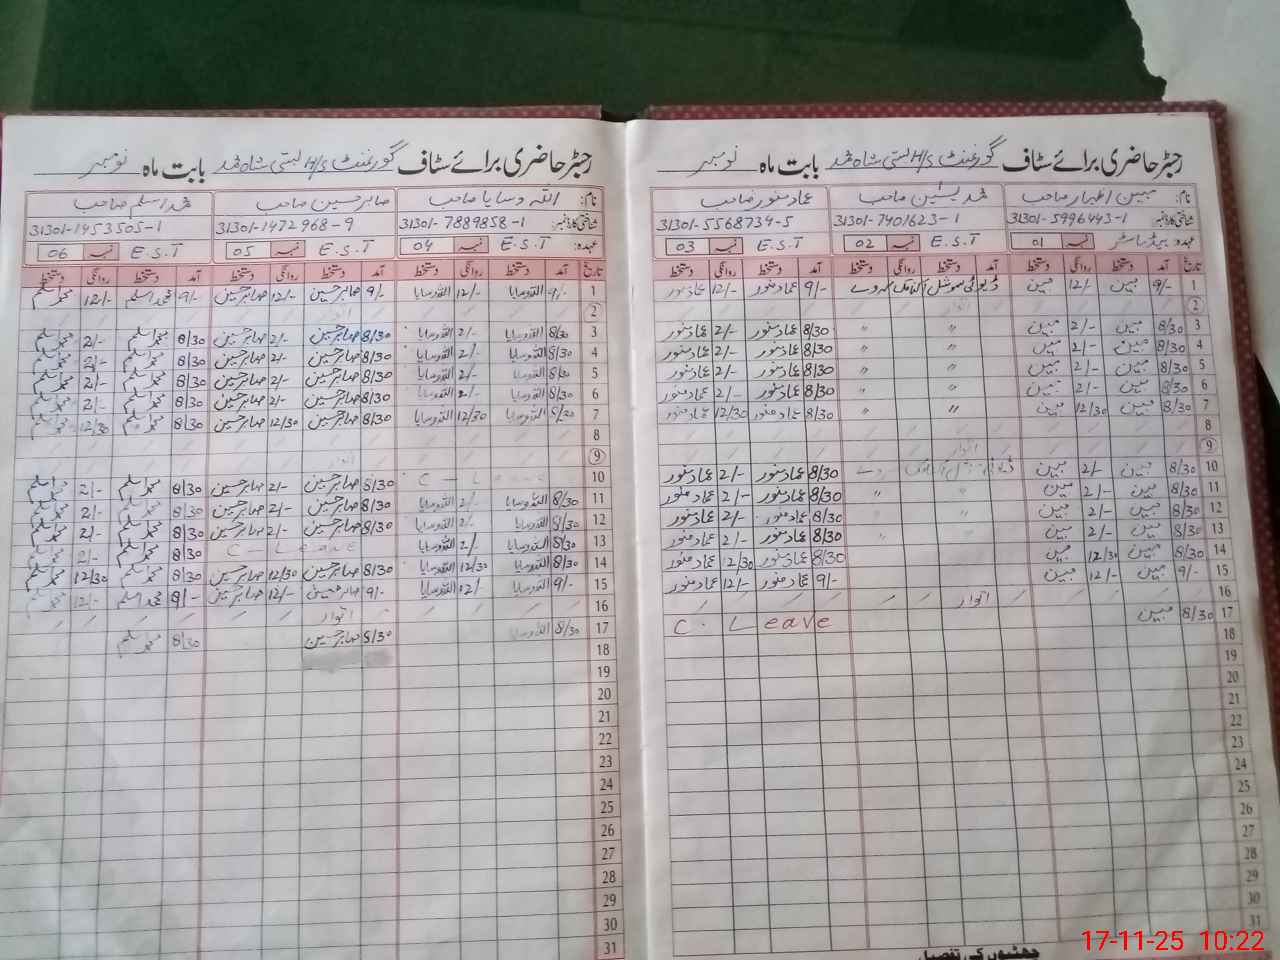 رجسٹر حاضری برائے سٹاف گورنمنٹ H/S بستی شاہ محمد بابت ماہ نومبر
نام: مبین اظہار صاحب محمد یٰسین صاحب عماد منور صاحب
شناختی کارڈ نمبر: 31301-5996443-1 31301-7401623-1 31301-5568734-5
عہدہ: ہیڈ ماسٹر نمبر 01 E.S.T نمبر 02 E.S.T نمبر 03
تاریخ آمد دستخط روانگی دستخط آمد دستخط روانگی دستخط آمد دستخط روانگی دستخط
1 9/- مبین 12/- مبین ڈیوٹی سوشل اکنامک سروے 9/- عماد منور 12/- عماد منور
2 اتوار
3 8/30 مبین 2/- مبین 〃 〃 8/30 عماد منور 2/- عماد منور
4 8/30 مبین 2/- مبین 〃 〃 8/30 عماد منور 2/- عماد منور
5 8/30 مبین 2/- مبین 〃 〃 8/30 عماد منور 2/- عماد منور
6 8/30 مبین 2/- مبین 〃 〃 8/30 عماد منور 2/- عماد منور
7 8/30 مبین 12/30 مبین 〃 〃 8/30 عماد منور 12/30 عماد منور
8
9 اتوار
10 8/30 مبین 2/- مبین 8/30 عماد منور 2/- عماد منور
11 8/30 مبین 2/- مبین 〃 〃 8/30 عماد منور 2/- عماد منور
12 8/30 مبین 2/- مبین 〃 〃 8/30 عماد منور 2/- عماد منور
13 8/30 مبین 2/- مبین 〃 〃 8/30 عماد منور 2/- عماد منور
14 8/30 مبین 12/30 مبین 8/30 عماد منور 12/30 عماد منور
15 9/- مبین 12/- مبین 9/- عماد منور 12/- عماد منور
16 اتوار
17 8/30 مبین C. Leave
18
19
20
21
22
23
24
25
26
27
28
29
30
31
چھٹیوں کی تفصیل
رجسٹر حاضری برائے سٹاف گورنمنٹ H/S بستی شاہ محمد بابت ماہ نومبر
نام: اللہ وسایا صاحب صابر حسین صاحب محمد اسلم صاحب
شناختی کارڈ نمبر: 31301-7889858-1 31301-1472968-9 31301-1453505-1
عہدہ: E.S.T نمبر 04 E.S.T نمبر 05 E.S.T نمبر 06
تاریخ آمد دستخط روانگی دستخط آمد دستخط روانگی دستخط آمد دستخط روانگی دستخط
1 9/- اللہ وسایا 12/- اللہ وسایا 9/- صابر حسین 12/- صابر حسین 9/- محمد اسلم 12/- محمد اسلم
2 اتوار
3 8/30 اللہ وسایا 2/- اللہ وسایا 8/30 صابر حسین 2/- صابر حسین 8/30 محمد اسلم 2/- محمد اسلم
4 8/30 اللہ وسایا 2/- اللہ وسایا 8/30 صابر حسین 2/- صابر حسین 8/30 محمد اسلم 2/- محمد اسلم
5 8/30 اللہ وسایا 2/- اللہ وسایا 8/30 صابر حسین 2/- صابر حسین 8/30 محمد اسلم 2/- محمد اسلم
6 8/30 اللہ وسایا 2/- اللہ وسایا 8/30 صابر حسین 2/- صابر حسین 8/30 محمد اسلم 2/- محمد اسلم
7 8/30 اللہ وسایا 12/30 اللہ وسایا 8/30 صابر حسین 12/30 صابر حسین 8/30 محمد اسلم 12/30 محمد اسلم
8
9 اتوار
10 C - Leave 8/30 صابر حسین 2/- صابر حسین 8/30 محمد اسلم 2/- محمد اسلم
11 8/30 اللہ وسایا 2/- اللہ وسایا 8/30 صابر حسین 2/- صابر حسین 8/30 محمد اسلم 2/- محمد اسلم
12 8/30 اللہ وسایا 2/- اللہ وسایا 8/30 صابر حسین 2/- صابر حسین 8/30 محمد اسلم 2/- محمد اسلم
13 8/30 اللہ وسایا 2/- اللہ وسایا C - Leave 8/30 محمد اسلم 2/- محمد اسلم
14 8/30 اللہ وسایا 12/30 اللہ وسایا 8/30 صابر حسین 12/30 صابر حسین 8/30 محمد اسلم 12/30 محمد اسلم
15 9/- اللہ وسایا 12/- اللہ وسایا 9/- صابر حسین 12/- صابر حسین 9/- محمد اسلم 12/- محمد اسلم
16 اتوار
17 8/30 اللہ وسایا 8/30 صابر حسین 8/30 محمد اسلم
18
19
20
21
22
23
24
25
26
27
28
29
30
31
17-11-25 10:22